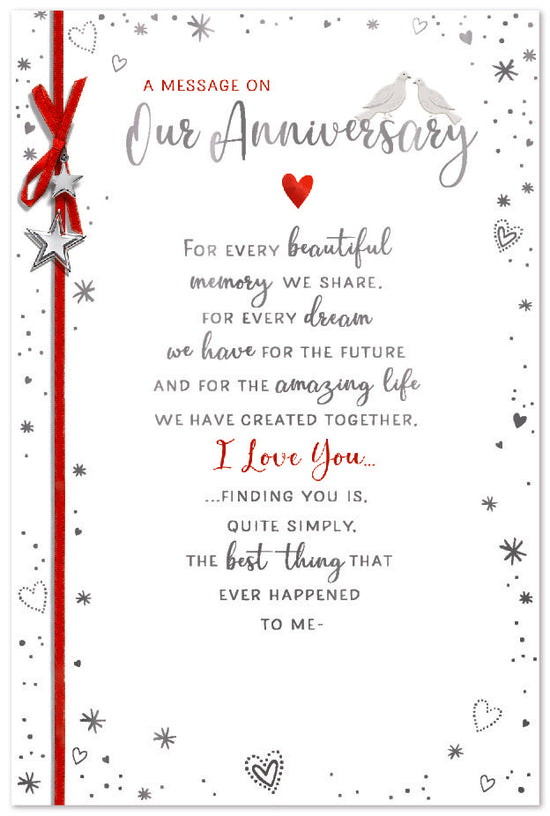 A MESSAGE ON
Our Anniversary
FOR EVERY beautiful
memory WE SHARE,
FOR EVERY dream
we have FOR THE FUTURE
AND FOR THE amazing life
WE HAVE CREATED TOGETHER,
I Love You...
...FINDING YOU IS,
QUITE SIMPLY,
THE best thing THAT
EVER HAPPENED
TO ME-